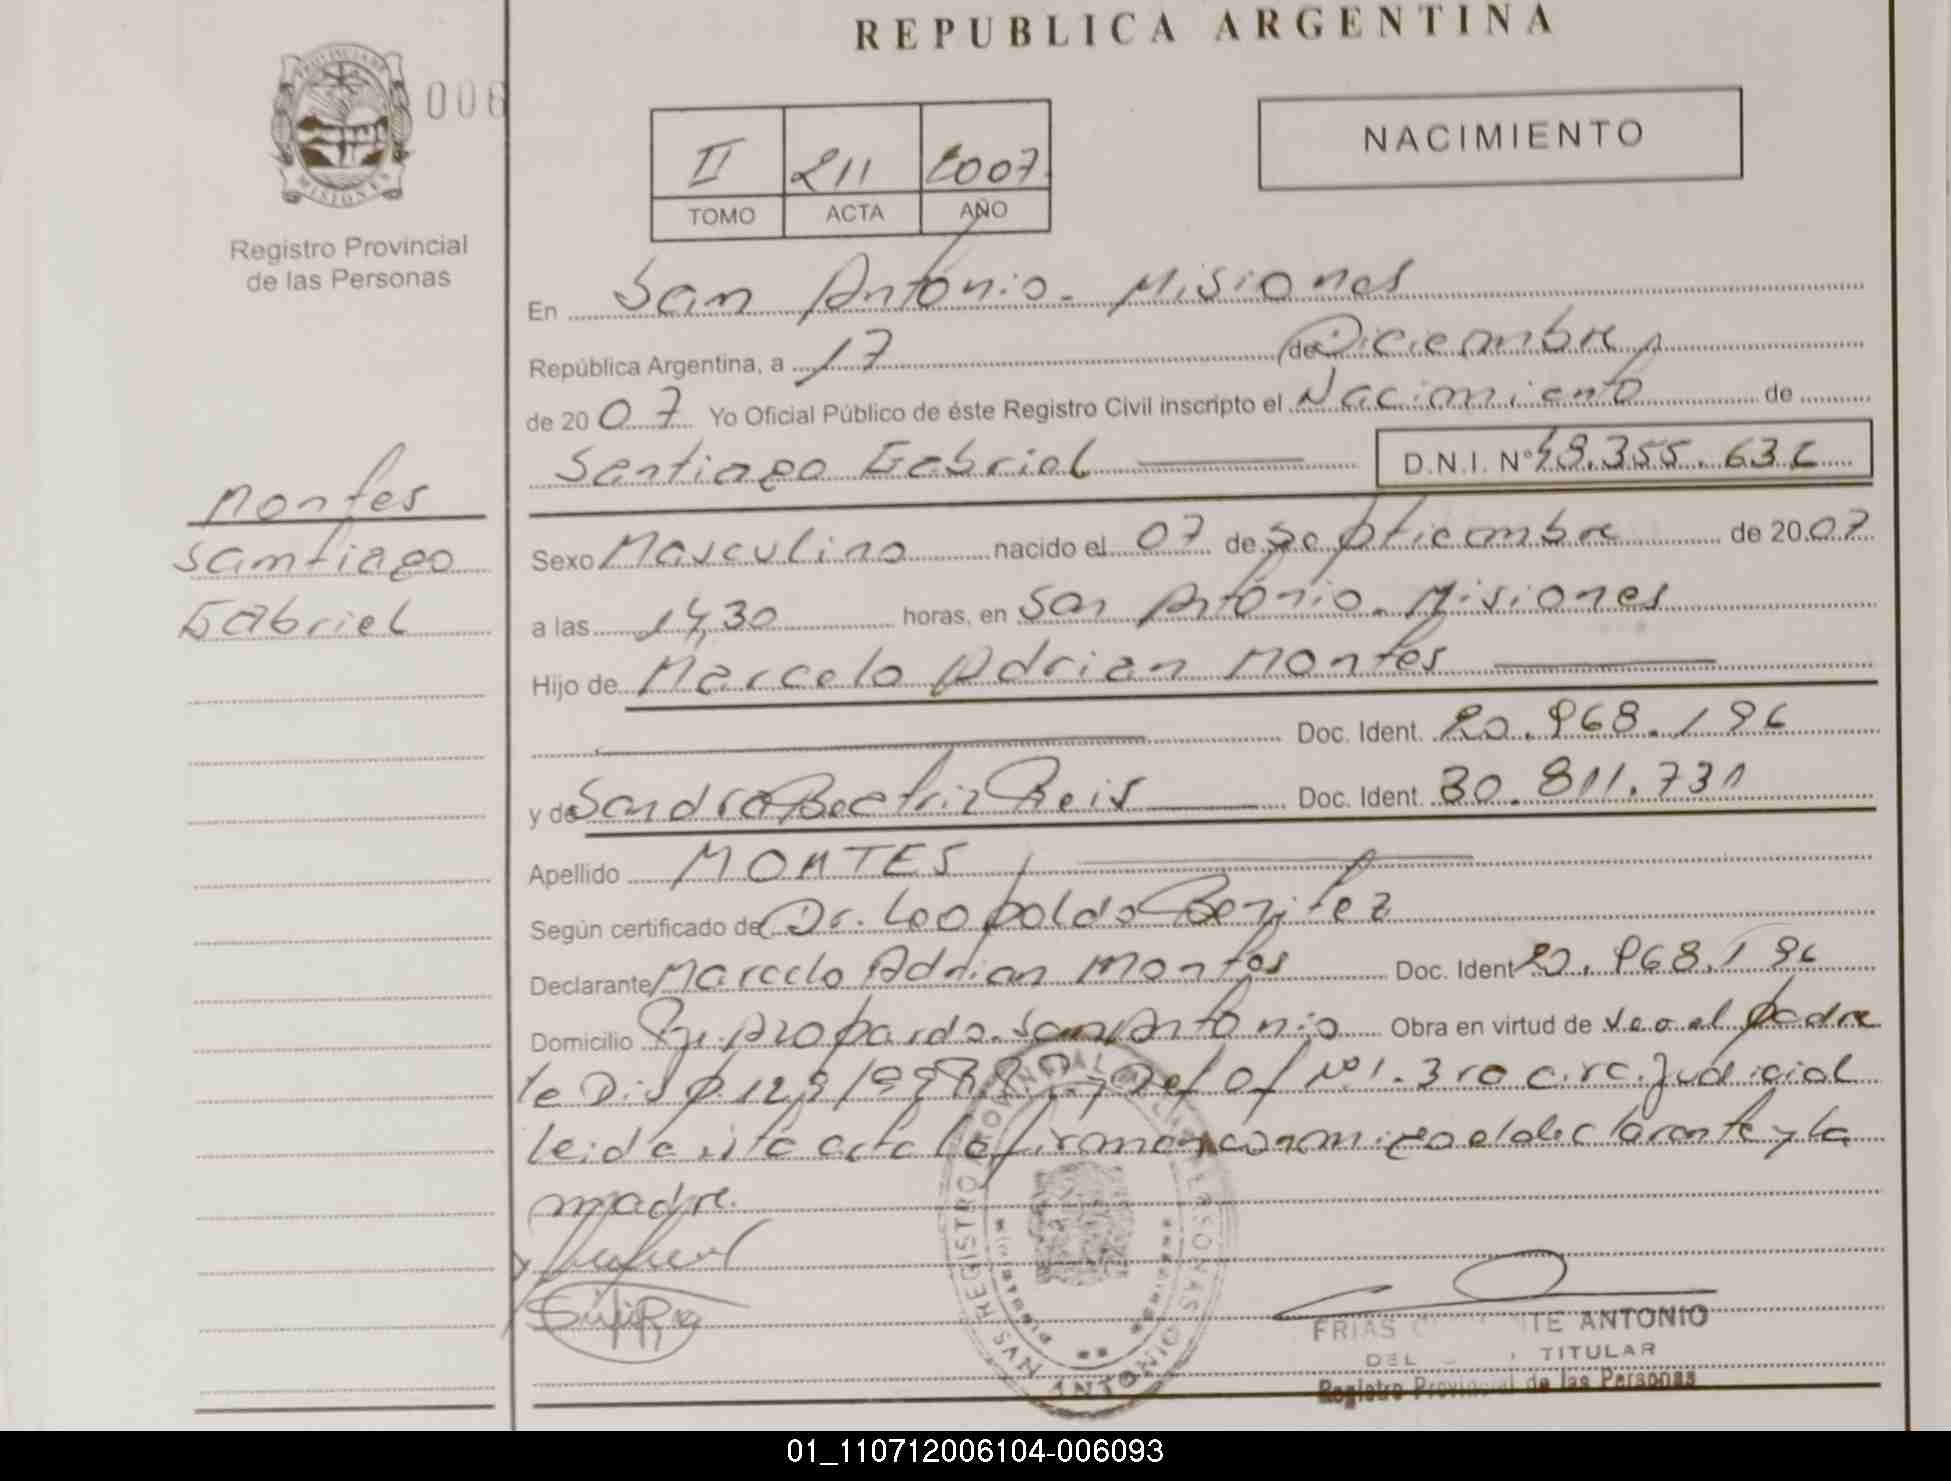 REPUBLICA ARGENTINA
006
NACIMIENTO
II 211 2007
TOMO ACTA AÑO
Registro Provincial
de las Personas
En San Antonio - Misiones
República Argentina, a 17 de Diciembre
de 2007 Yo Oficial Público de éste Registro Civil inscripto el Nacimiento de
Santiago Gabriel D.N.I. Nº 48.355.636
Montes
Santiago
Gabriel
Sexo Masculino nacido el 07 de Septiembre de 2007
a las 14,30 horas, en San Antonio - Misiones
Hijo de Marcelo Adrian Montes
Doc. Ident. 20.968.196
y de Sandra Beatriz Reis Doc. Ident. 30.811.731
Apellido MONTES
Según certificado de Dr. Leopoldo Benitez
Declarante Marcelo Adrian Montes Doc. Ident 20.968.196
Domicilio San Antonio Obra en virtud de ser el padre
Disp. 129/998 Def Of Nº 1. 3ro circ. Judicial
leida esta acta la firman conmigo el declarante y la
madre.
REGISTRO PROVINCIAL DE LAS PERSONAS
SAN ANTONIO
Misiones
FRIAS ANTONIO
TITULAR
Registro Provincial de las Personas
01_110712006104-006093